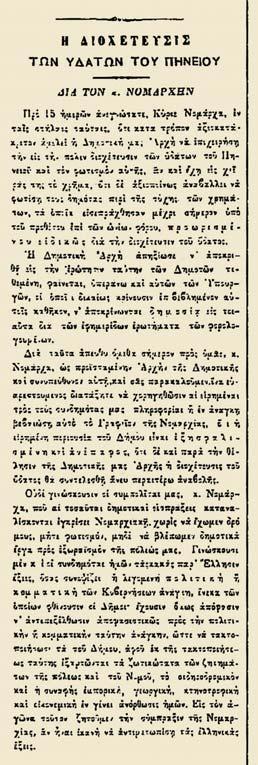 Η ΔΙΟΧΕΤΕΥΣΙΣ
ΤΩΝ ΥΔΑΤΩΝ ΤΟΥ ΠΗΝΕΙΟΥ
ΔΙΑ ΤΟΝ κ. ΝΟΜΑΡΧΗΝ
Πρὸ 15 ἡμερῶν ἀνεγνώσατε, Κύριε Νομάρχα, ἐν
ταῖς στήλαις ταύταις, ὅτι κατὰ τρόπον ἀξιοκατά-
κριτον ἀμελεῖ ἡ Δημοτική μας Ἀρχὴ νὰ ἐπιχειρήσῃ
τὴν εἰς τὴν πόλιν διοχέτευσιν τῶν ὑδάτων τοῦ Πη-
νειοῦ καὶ τὸν φωτισμὸν αὐτῆς. Ἂν καὶ ἔχῃ εἰς χεῖ-
ράς της τὸ χρῆμα, ὅτι δὲ ἀναβάλλει νὰ
φωτίσῃ τοὺς δημότας περὶ τῆς τύχης τῶν χρημά-
των, τὰ ὁποῖα εἰσεπράχθησαν μέχρι σήμερον ὑπὸ
τοῦ ἐπὶ τῶν ὠνίων φόρου, προωρισμέ-
νου εἰδικῶς διὰ τὴν διοχέτευσιν τοῦ ὕδατος.
Ἡ Δημοτικὴ Ἀρχὴ ἀπηξίωσε ν' ἀποκρι-
θῇ εἰς τὴν ἐρώτησιν ταύτην τῶν Δημοτῶν τε-
θειμένη, φαίνεται, ὑπεράνω καὶ αὐτῶν τῶν Ὑπουρ-
γῶν, οἱ ὁποῖοι δικαίως κρίνουσιν ἐπιβεβλημένον αὐ-
τοῖς καθῆκον, ν' ἀποκρίνωνται δημοσίᾳ εἰς τοι-
αῦτα διὰ τῶν ἐφημερίδων ἐρωτήματα τῶν φορολο-
γουμένων.
Διὰ ταῦτα ἀπευθυνόμεθα σήμερον πρὸς ὑμᾶς, κ.
Νομάρχα, ὡς προϊσταμένην Ἀρχὴν τῆς Δημοτικῆς
καὶ συνυπεύθυνον αὐτῇ, καὶ σᾶς παρακαλοῦμεν, ἵνα εὐ-
αρεστούμενος διατάξητε νὰ χορηγηθῶσιν αἱ εἰρημέναι
πρὸς τοὺς συνδημότας μας πληροφορίαι ἢ ἐν ἀνάγκῃ
βεβαιώσῃ αὐτὸ τὸ Γραφεῖον τῆς Νομαρχίας, ὅτι ἡ
εἰρημένη περιουσία τοῦ Δήμου εἶναι ἐξησφαλι-
σμένη καὶ ἀνέπαφος, ὅτι δὲ καὶ παρὰ τὴν θέ-
λησιν τῆς Δημοτικῆς μας Ἀρχῆς ἡ διοχέτευσις τοῦ
ὕδατος θὰ συντελεσθῇ ἄνευ περαιτέρω ἀναβολῆς.
Οὐδὲ γινώσκουσιν οἱ συμπολῖταί μας, κ. Νομάρ-
χα, ποῦ αἱ τοσαῦται δημοτικαὶ εἰσπράξεις καταναλί-
σκονται ἐγκρίσει Νομαρχιακῇ, χωρὶς νὰ ἔχωμεν δρό-
μους, μήτε φωτισμόν, μηδὲ νὰ βλέπωμεν δημοτικὰ
ἔργα πρὸς ἐξωραϊσμὸν τῆς πόλεώς μας. Γινώσκου-
μὲν καὶ οἱ συνδημόται ἡμῶν τὰς κακὰς παρ' Ἕλλησιν
ἕξεις, ὅσας συνοψίζει ἡ λεγομένη πολιτικὴ ἢ
κομματικὴ τῶν Κυβερνήσεων ἀνάγκη, ἕνεκα τῶν
ὁποίων φθίνουσιν οἱ Δῆμοι· ἔχουσιν ὅμως ἀπόφασιν
ν' ἀντεπεξέλθωσιν ἀποφασιστικῶς πρὸς τὴν πολιτι-
κὴν ἢ κομματικὴν ταύτην ἀνάγκην, ὥστε νὰ τακτο-
ποιήσωσι τὰ τοῦ Δήμου, ἀφοῦ ἐκ τῆς τακτοποιήσε-
ως ταύτης ἐξαρτῶνται τὰ ζωτικώτατα τῶν ζητημά-
των τῆς πόλεως καὶ τοῦ Νομοῦ, τὸ σιδηροδρομικὸν
καὶ ἡ συναφὴς ἐμπορική, γεωργική, κτηνοτροφικὴ
καὶ οἰκονομικὴ ἐν γένει ἀνόρθωσις ἡμῶν. Εἰς τὸν ἀ-
γῶνα τοῦτον ζητοῦμεν τὴν σύμπραξιν τῆς Νομαρ-
χίας, ἂν ἦναι ἱκανὴ νὰ ἀντιμετωπίσῃ τὰς ἑλληνικὰς
ἕξεις.